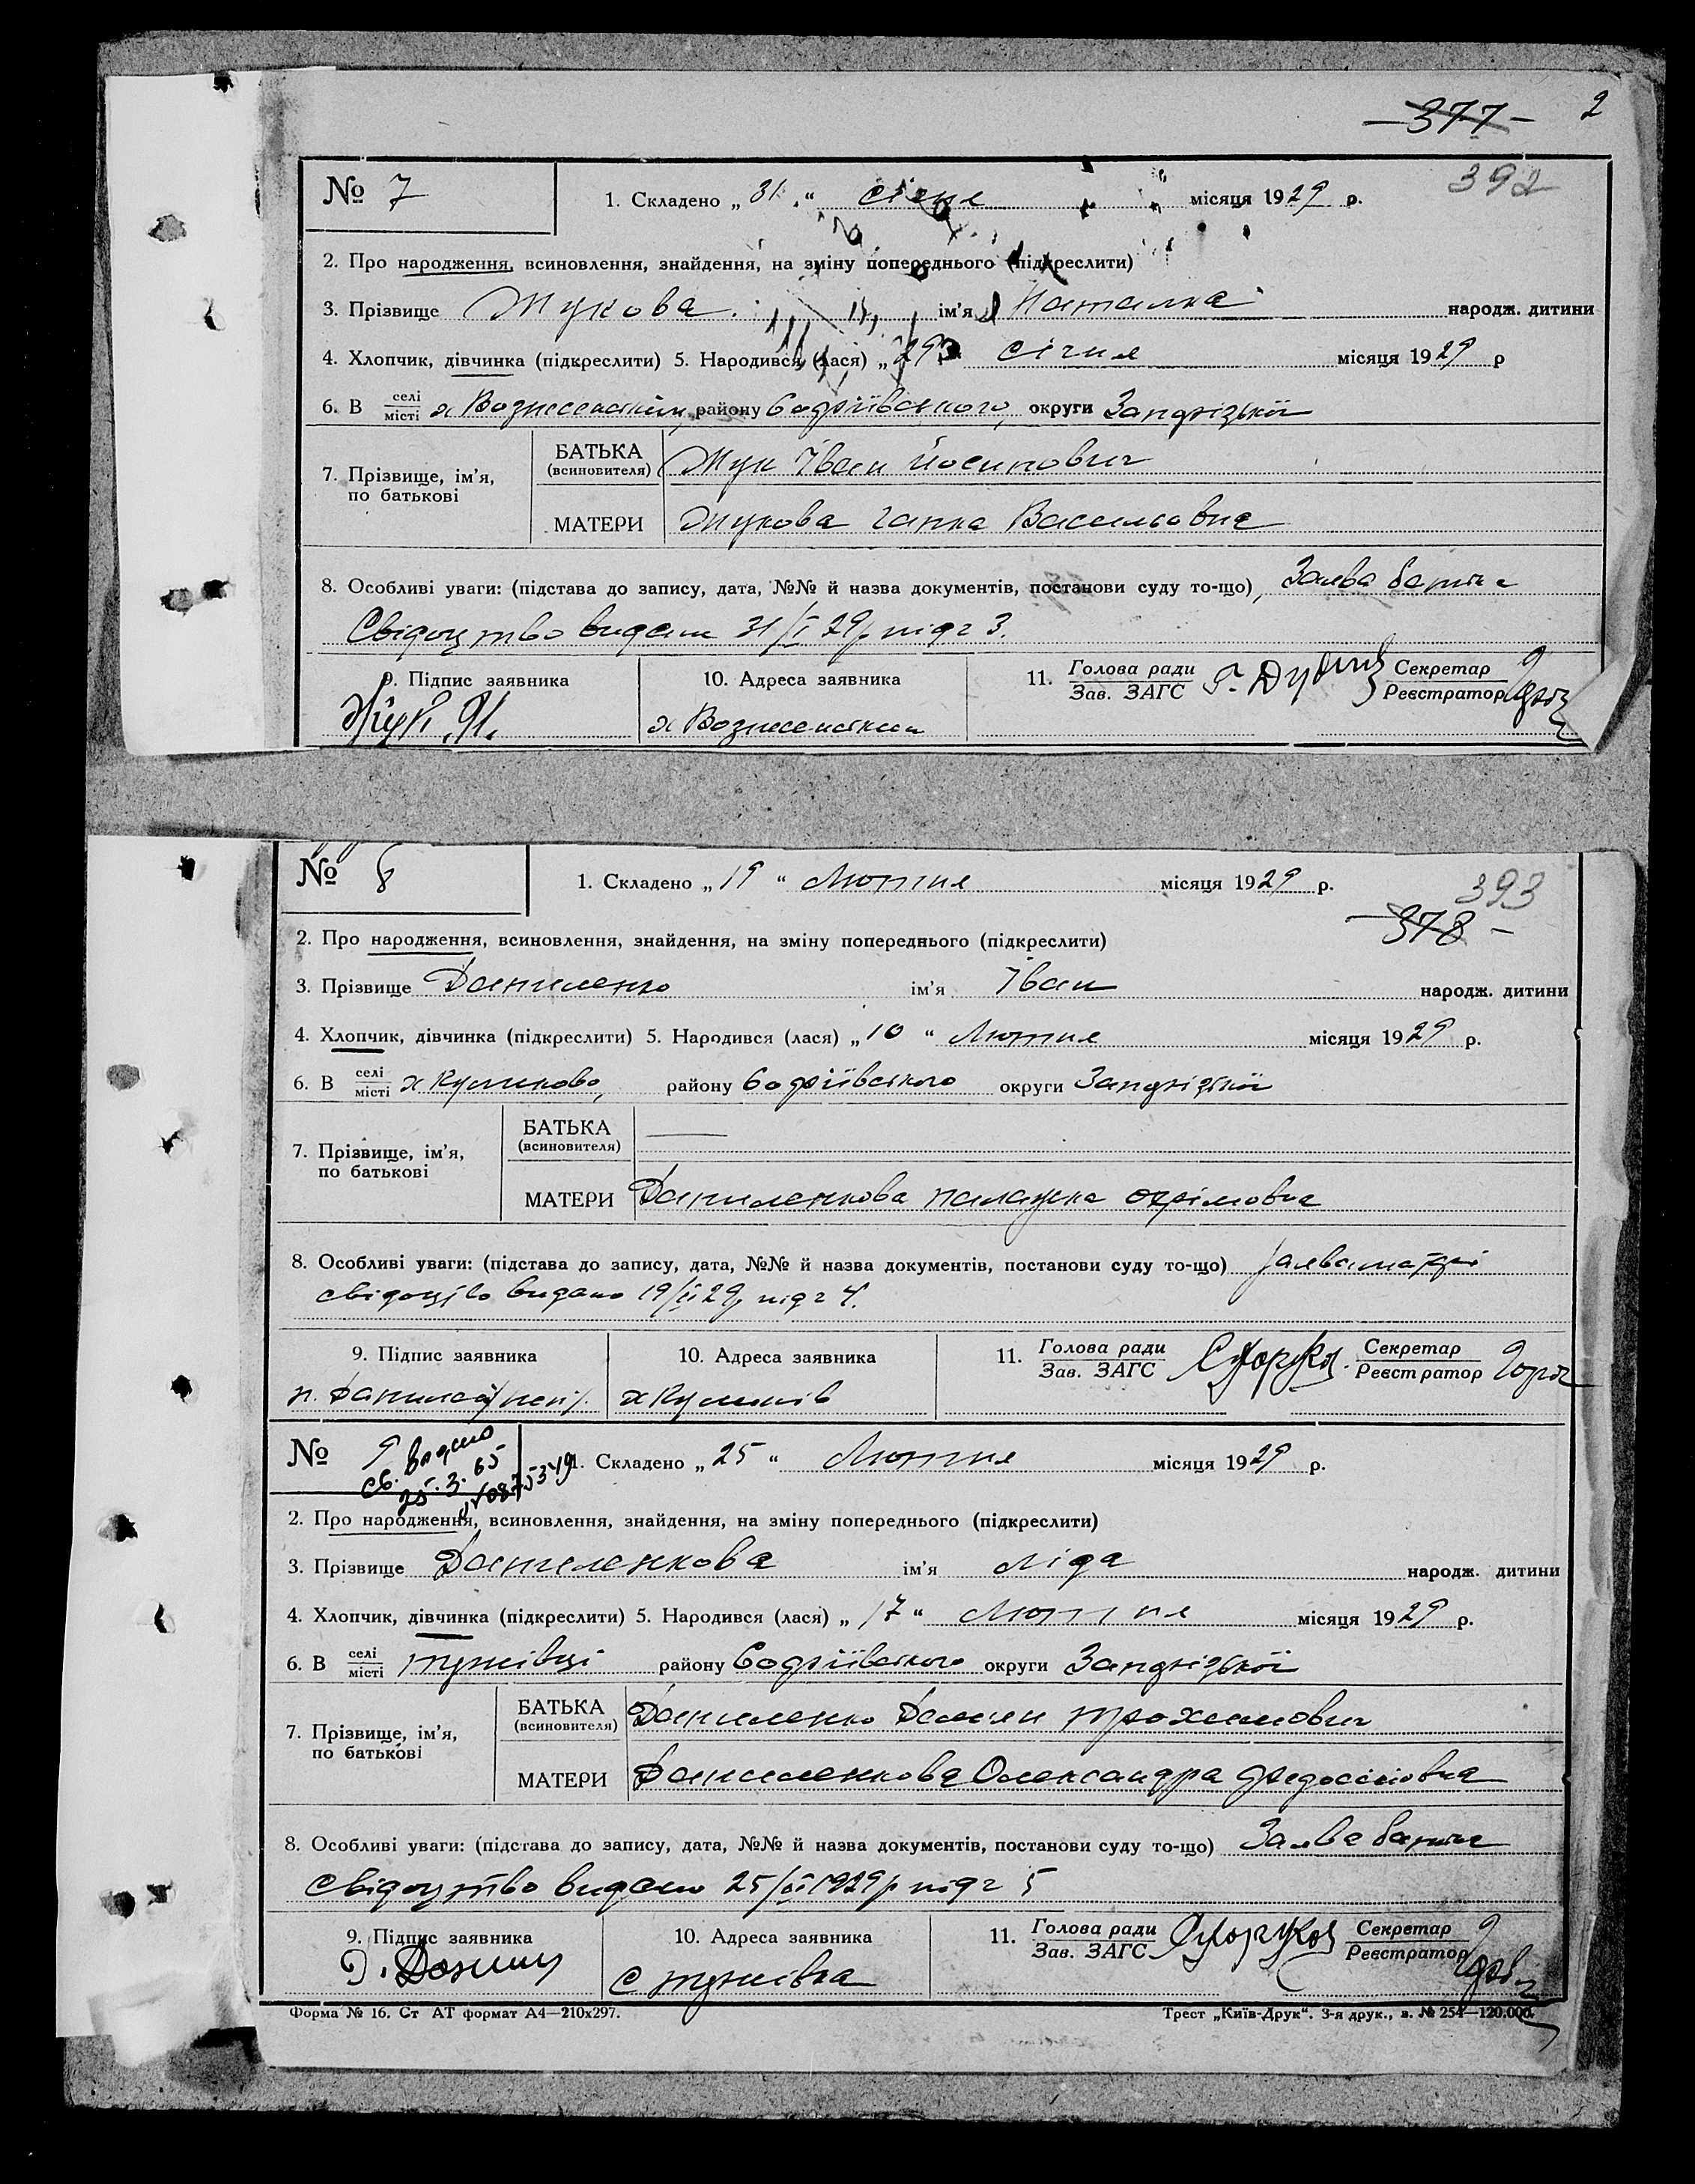 — 377 — 2
392
№ 7 1. Складено „ 31 “ січня місяця 1929 р.
2. Про народження, всиновлення, знайдення, на зміну попереднього (підкреслити)
3. Прізвище Жукова ім’я Наталка народж. дитини
4. Хлопчик, дівчинка (підкреслити) 5. Народився (лася) „ 29 “ січня місяця 1929 р
6. В селі/місті х Вознесенськім, району Софіївського, округи Запорізької
7. Прізвище, ім’я, по батькові
БАТЬКА (всиновителя) Жук Іван Йосипович
МАТЕРИ Жукова Ганна Васильовна
8. Особливі уваги: (підстава до запису, дата, №№ й назва документів, постанови суду то-що), Заява батька
Свідоцтво видано 31/I 29р під ч 3.
9. Підпис заявника 10. Адреса заявника 11. Голова ради/Зав. ЗАГС Секретар/Реєстратор
Жук И. х Вознесенський
№ 8 1. Складено „ 19 “ Лютня місяця 1929 р.
393
— 378 —
2. Про народження, всиновлення, знайдення, на зміну попереднього (підкреслити)
3. Прізвище Даниленко ім’я Іван народж. дитини
4. Хлопчик, дівчинка (підкреслити) 5. Народився (лася) „ 10 “ Лютня місяця 1929 р.
6. В селі/місті х району Софіївського округи Запорізької
7. Прізвище, ім’я, по батькові
БАТЬКА (всиновителя) ——
МАТЕРИ Даниленкова Палажка Охрімовна
8. Особливі уваги: (підстава до запису, дата, №№ й назва документів, постанови суду то-що) Заява матері
свідоцтво видано 19/II 29р під ч 4.
9. Підпис заявника 10. Адреса заявника 11. Голова ради/Зав. ЗАГС Секретар/Реєстратор
№ 9 1. Складено „ 25 “ Лютня місяця 1929 р.
св. видано
25. 3. 65
2. Про народження, всиновлення, знайдення, на зміну попереднього (підкреслити)
3. Прізвище Даниленкова ім’я Ліда народж. дитини
4. Хлопчик, дівчинка (підкреслити) 5. Народився (лася) „ 17 “ Лютня місяця 1929 р.
6. В селі/місті району Софіївського округи Запорізької
7. Прізвище, ім’я, по батькові
БАТЬКА (всиновителя) Даниленко Демян Трохимович
МАТЕРИ Даниленкова Олександра Федосіївна
8. Особливі уваги: (підстава до запису, дата, №№ й назва документів, постанови суду то-що) Заява батька
Свідоцтво видано 25/II 1929р під ч 5
9. Підпис заявника 10. Адреса заявника 11. Голова ради/Зав. ЗАГС Секретар/Реєстратор
Форма № 16. Ст АТ формат А4—210х297. Трест „Київ-Друк“. 3-я друк., з. № 254—120.000.